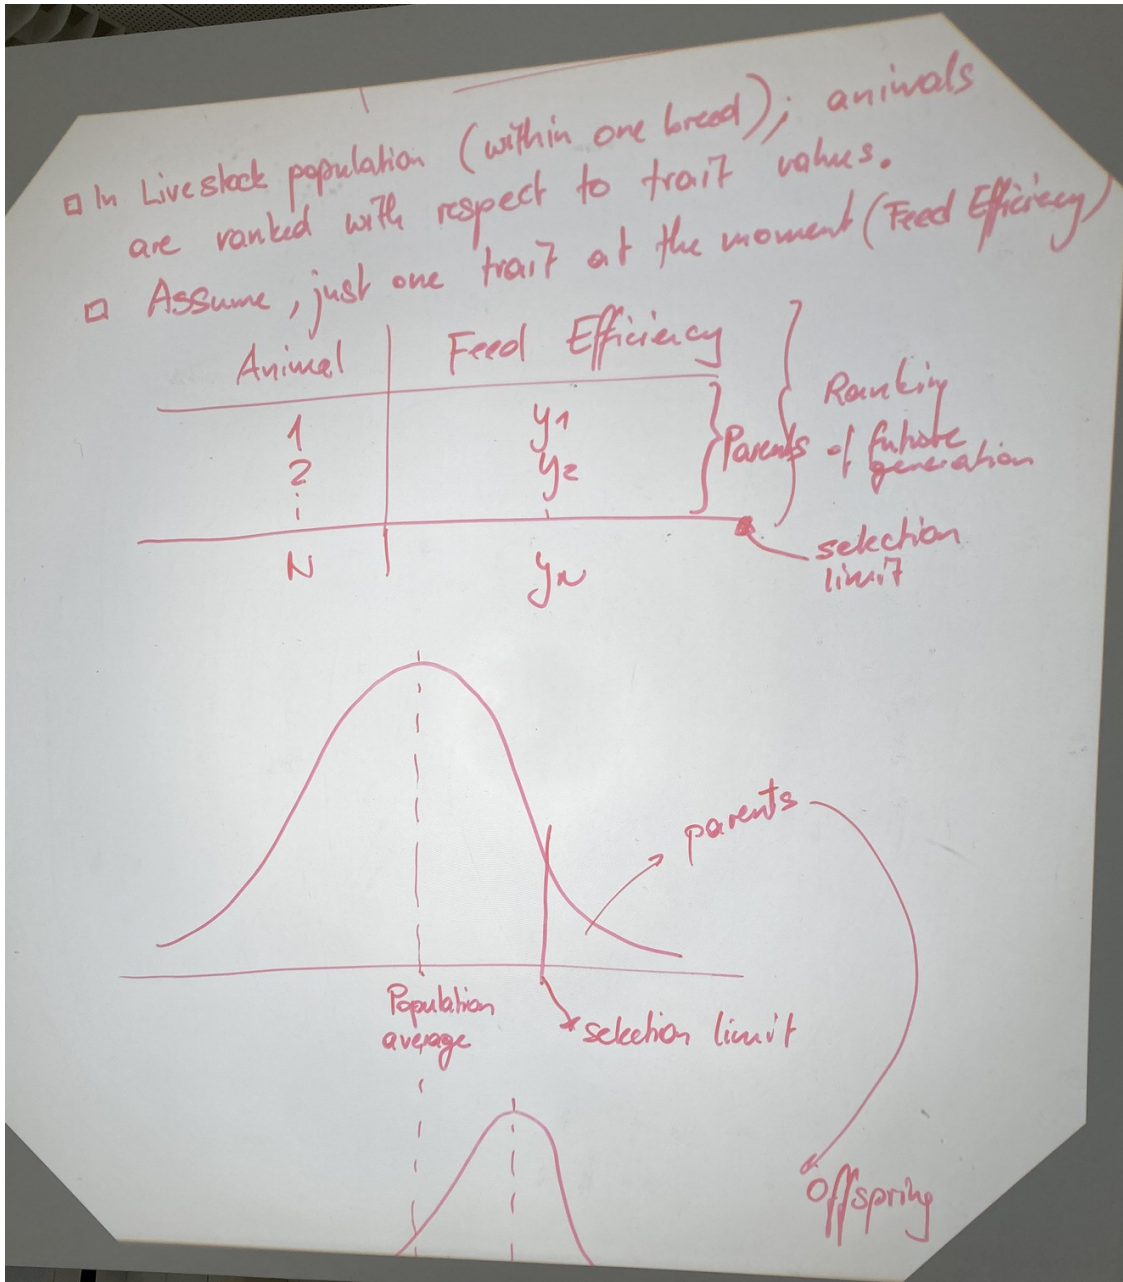 □ In Livestock population (within one breed); animals
are ranked with respect to trait values.
□ Assume, just one trait at the moment (Feed Efficiency)
Animal Feed Efficiency
1 y1
2 y2
Parents of future
generation
Ranking
N yN
selection
limit
parents
Population
average
selection limit
Offspring